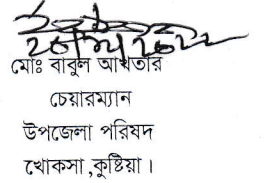 মোঃ বাবুল আখতার
চেয়ারম্যান
উপজেলা পরিষদ
খোকসা,কুষ্টিয়া।